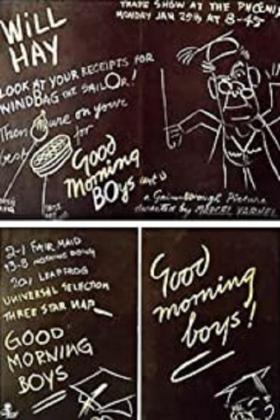 TRADE SHOW AT THE PHOENIX
MONDAY JAN 25th AT 8-45
WILL
HAY
LOOK AT YOUR RECEIPTS FOR
WINDBAG THE SAILOR!
Then
on your
best
for
Good
Morning
BOYS
a Gainsborough Picture
directed by MARCEL VARNEL
2-1 FAIR MAID
13-8 NOTHING DOING
20/1 LEAPFROG
UNIVERSAL SELECTION
THREE STAR NAP
GOOD
MORNING
BOYS
Good
morning
boys!